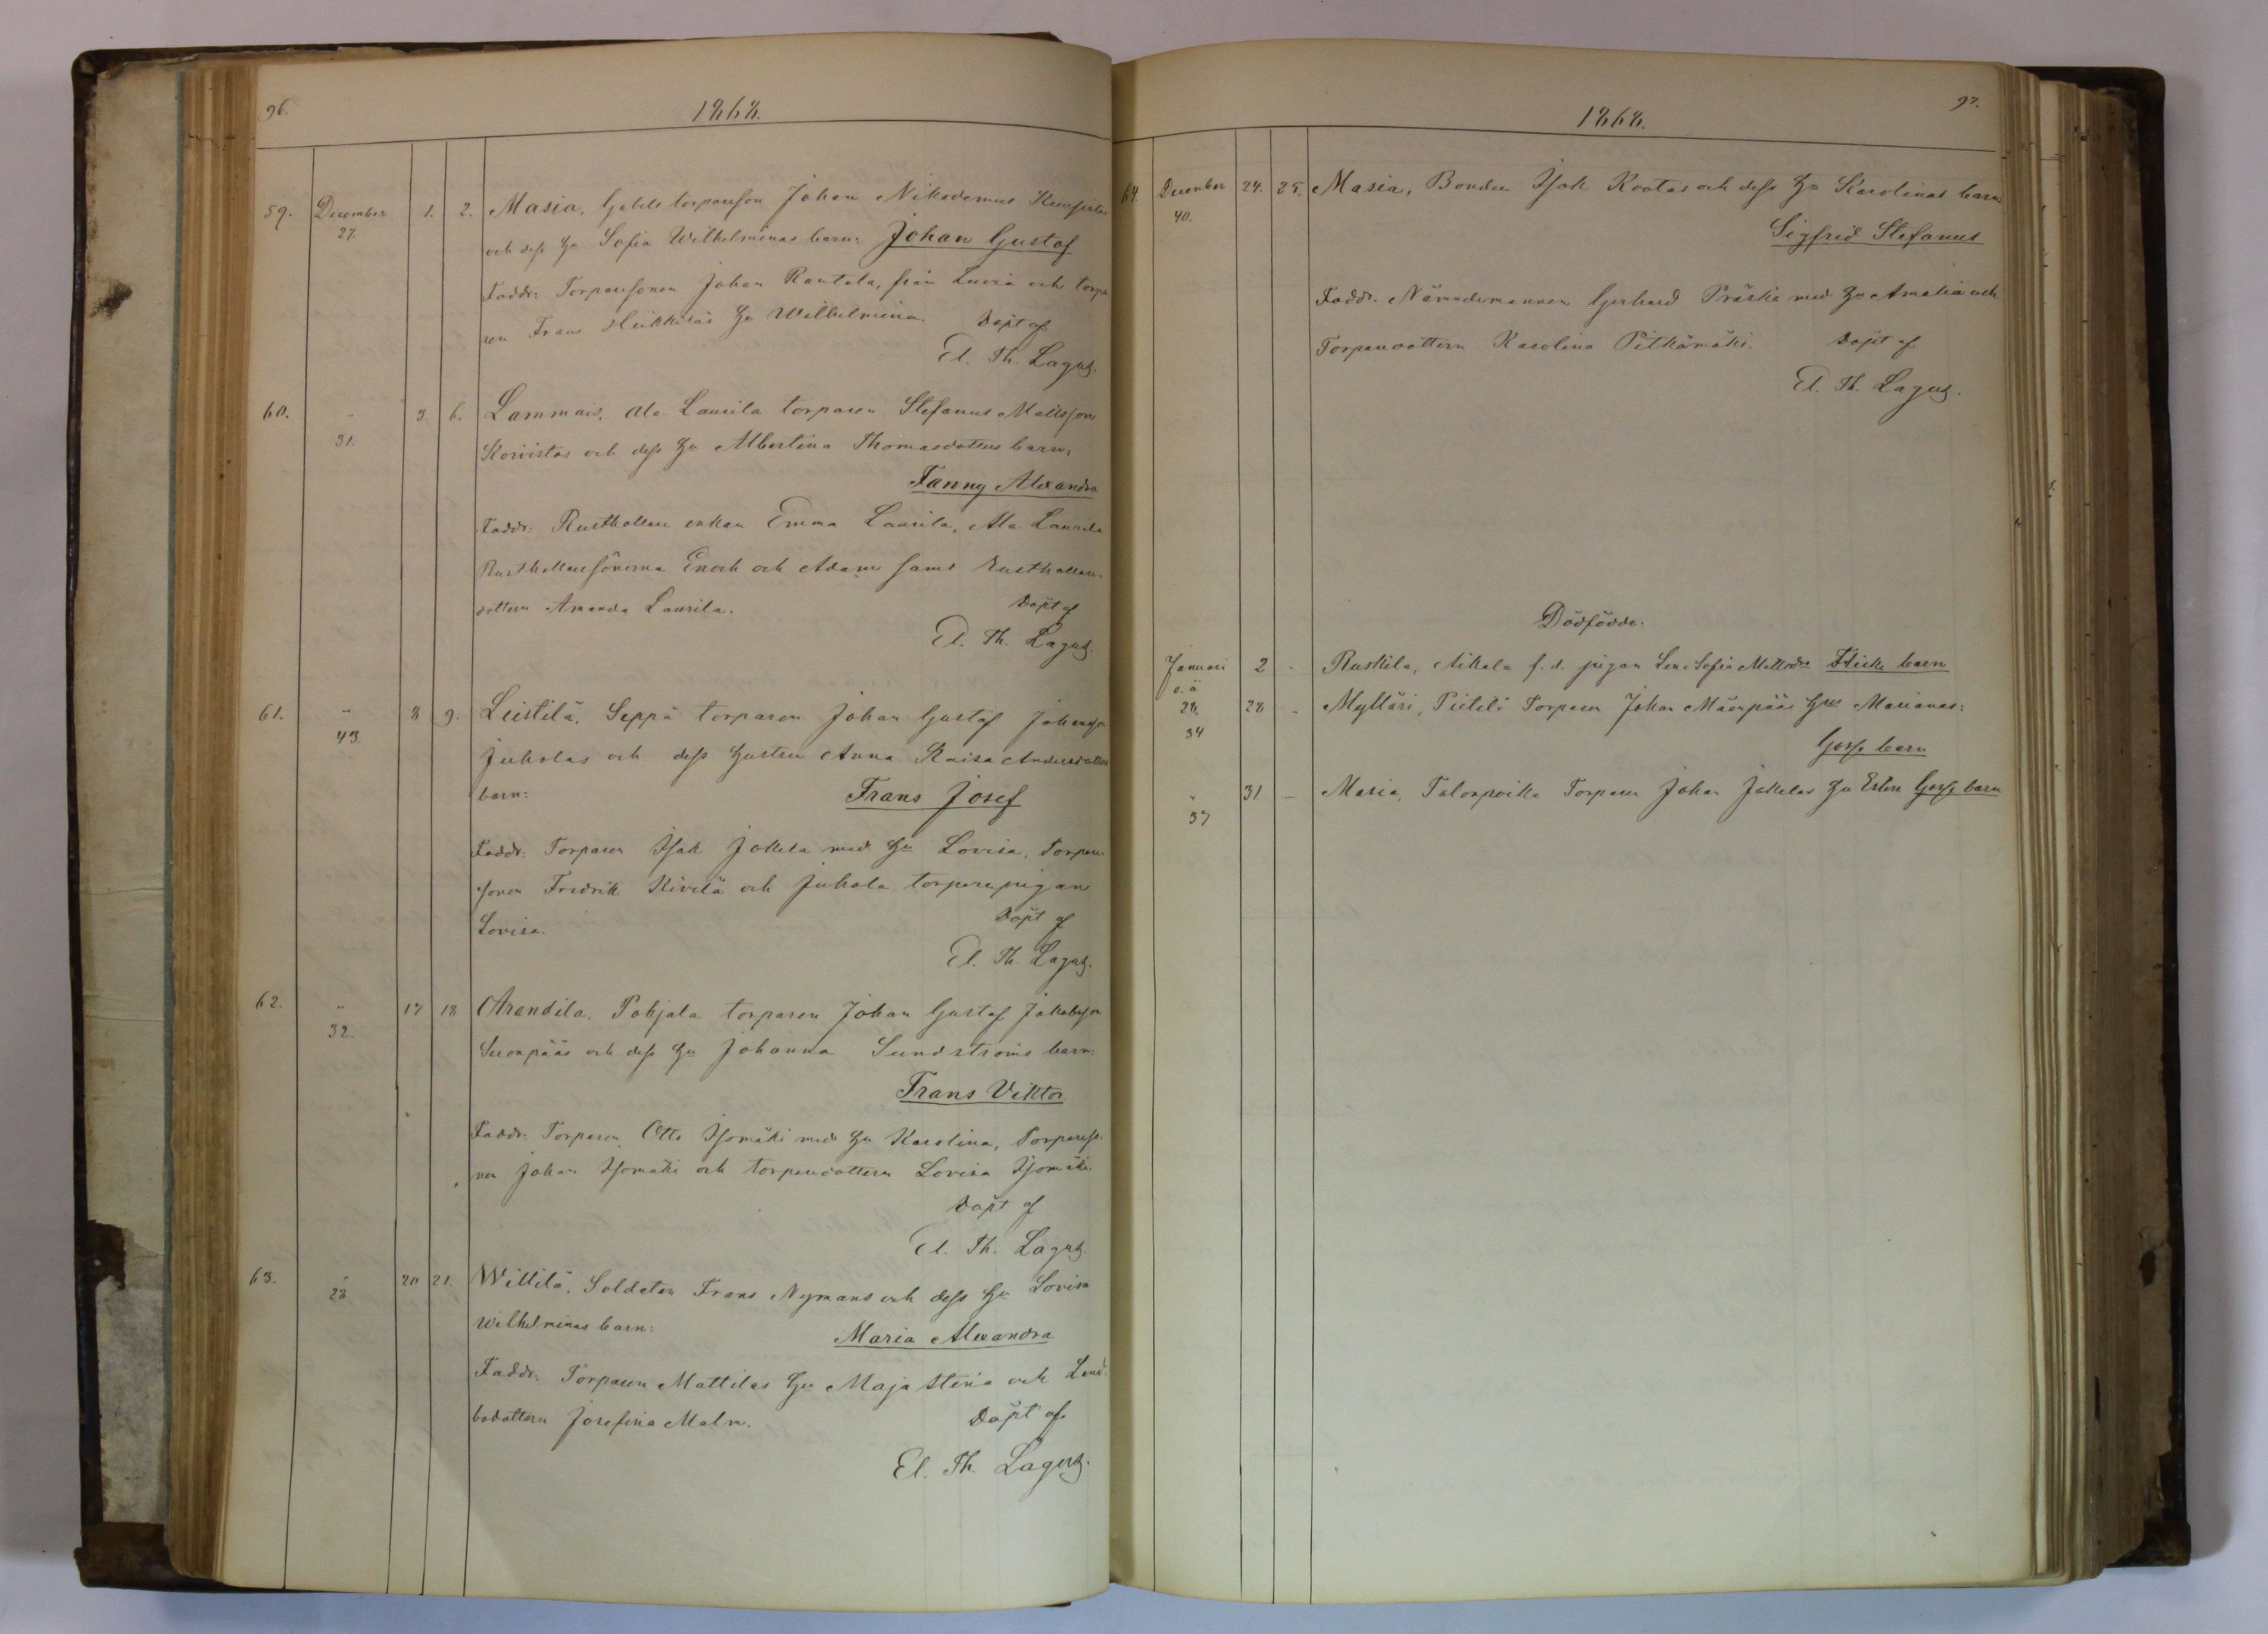 96.
1868.
59. December 1. 2. Masia, Gabels torpareson Johan Nikodemus
27. och dess Hu Sofia Wilhelminas barn: Johan Gustaf
Faddr: Torparesonen Johan Rautala, från Luvia och torpa
ren Frans Heikkiläs Hu Wilhelmina. Döpt af
El. Th. Lagus.
60. " 3. 6. Lammais, Ala-Laurila torparen Stefanus Matsson
31. Koivistos och dess Hu Albertina Thomasdotters barn:
Fanny Alexandra
Faddr: Rusthollare enkan Emma Laurila, Ala Laurila
Rusthollaresönerna Enoch och Adam samt Rusthollare-
dottern Amanda Laurila. Döpt af
El. Th. Lagus.
61. " 8 9. Leistilä, Seppä torparen Johan Gustaf Johansson
43. Juholas och dess Hustru Anna Kaisa Andersdotters
barn: Frans Josef
Faddr: Torparen Isak Jokela med Hu Lovisa, Torpare-
sonen Fredrik Kivelä och Juhola torparepigan
Lovisa. Döpt af
El. Th. Lagus.
62. " 17 18 Arandila, Pohjala torparen Johan Gustaf Jakobsson
32. Suonpääs och dess Hu Johanna Sundströms barn:
Frans Viktor
Faddr: Torparen Otto Isomäki med Hu Karolina, Torpareso-
nen Johan Isomäki och torparedottern Lovisa Isomäki.
Döpt af
El. Th. Lagus.
63. " 20 21. Wittilä, Soldaten Frans Nymans och dess Hu Lovisa
28 Wilhelminas barn: Maria Alexandra
Faddr: Torparen Mattilas Hu Maja Stina och Land-
bodottern Josefina Malm. Döpt af
El. Th. Lagus.
97.
1868.
64. December 24. 25. Masia, Bonden Isak Kootas och dess Hu Karolinas barn
40. Sigfrid Stefanus
Faddr. Nämndemannen Gerhard Präski med Hu Amalia och
Torparedottern Karolina Pitkämäki. Döpt af
El. Th. Lagus.
Dödfödde:
Januari 2 - Ruskila, Aikala f.d. pigan Lena Sofia Mattsdrs Flicke barn
o.ä
28. 28 - Mylläri, Pietilä Torparen Johan Mäenpääs Hus Marianas:
34 Gosse barn
" 31 - Masia, Talonpoika Torparen Johan Jokelas Hu Esters Gosse barn
37